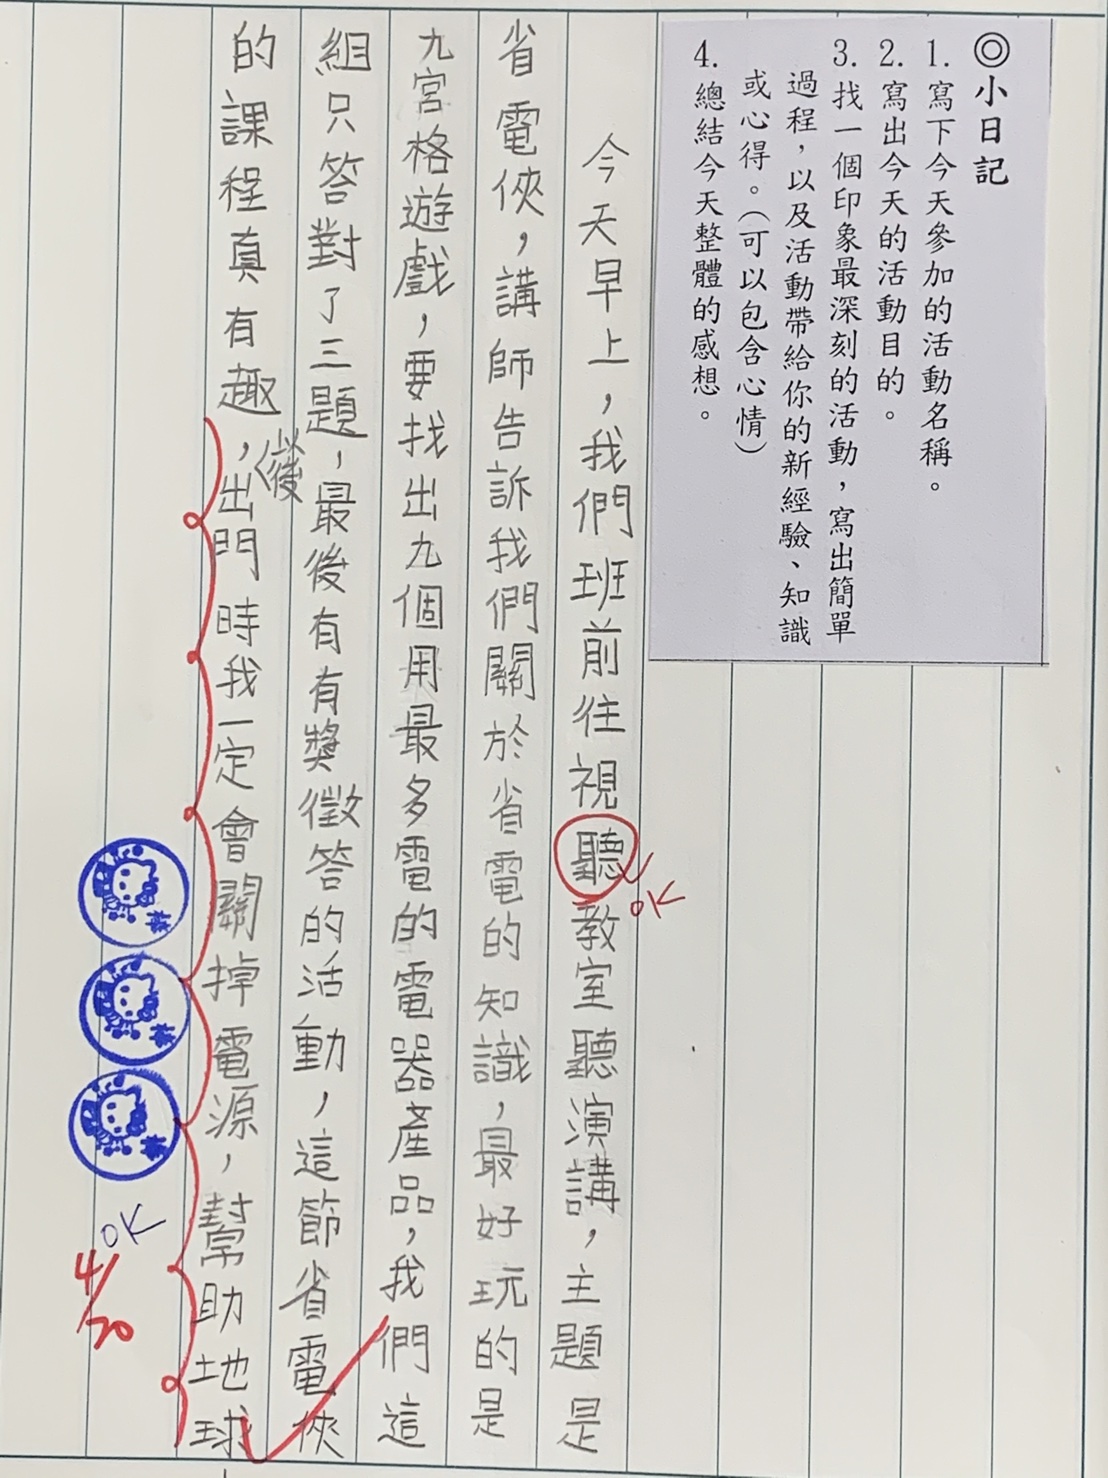 ◎小日記
1. 寫下今天參加的活動名稱。
2. 寫出今天的活動目的。
3. 找一個印象最深刻的活動，寫出簡單
過程，以及活動帶給你的新經驗、知識
或心得。（可以包含心情）
4. 總結今天整體的感想。
今天早上，我們班前往視聽教室聽演講，主題是
OK
省電俠，講師告訴我們關於省電的知識，最好玩的是
九宮格遊戲，要找出九個用最多電的電器產品，我們這
組只答對了三題，最後有有獎徵答的活動，這節省電俠
的課程真有趣，出門時我一定會關掉電源，幫助地球
後
OK
4/30